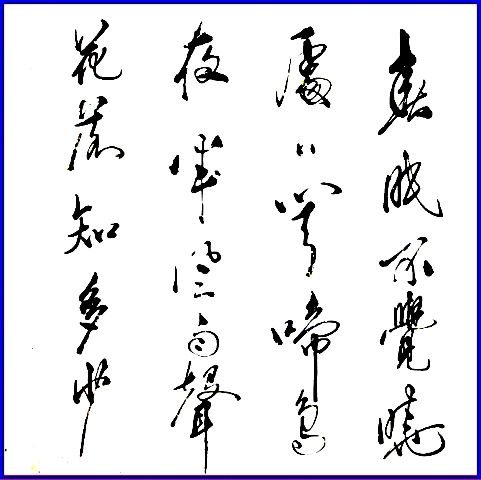 春眠不覺曉
處處聞啼鳥
夜來風雨聲
花落知多少